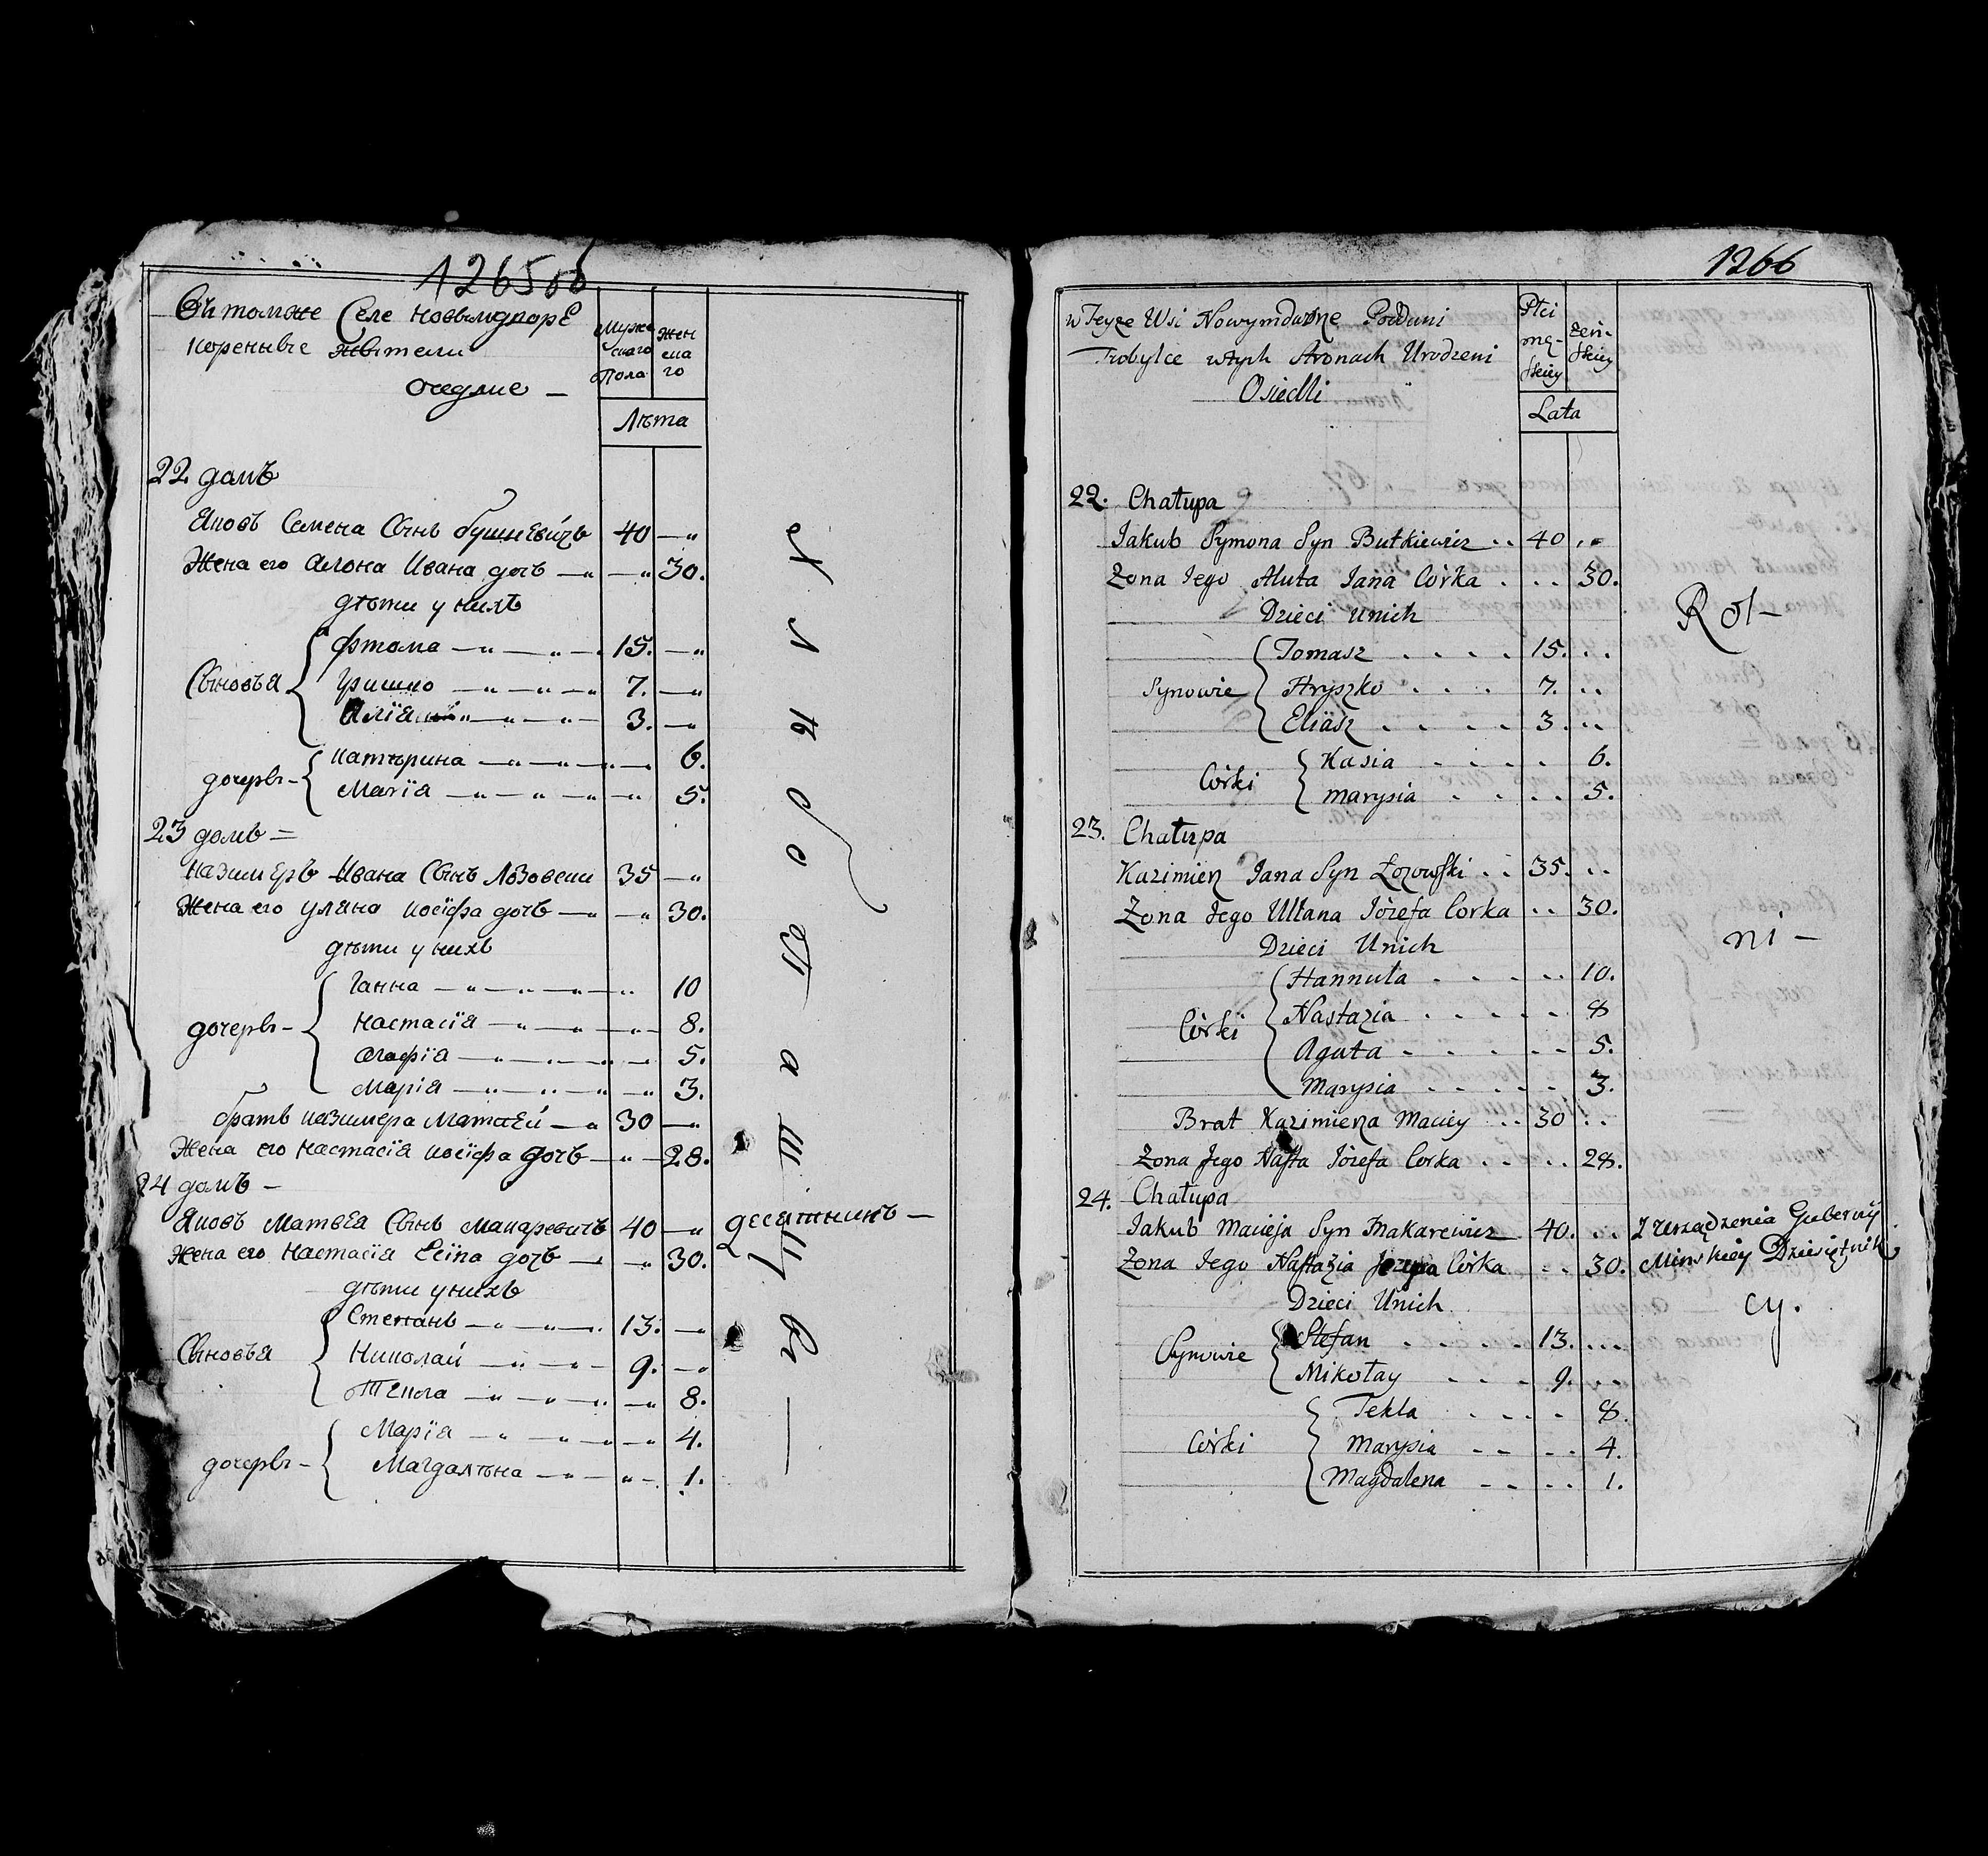 1265 об
Въ томже Селе Новымдворѣ
коренныѣ жители
оседлие —
Мужескаго Пола
Женскаго
Лѣта
22 домъ
Яковъ Семена Сынъ Буткевичъ 40 — „
Жена его Алона Ивана дочь — „ — „ 30.
дѣти у нихъ
Сыновья
Фтома — „ — „ — 15. — „
Гришко — „ — „ — „ 7. — „
Алїяшъ „ — „ — „ 3. — „
дочеры —
Катѣрина — „ — „ — „ — 6.
Марїя — „ — „ — „ — „ 5.
23 домъ =
Казимеръ Ивана Сынъ Лозовски 35 — „
Жена его Уляна Иосїфа дочь — „ — „ 30.
дѣти у нихъ
дочеры —
Ганна — „ — „ — „ — „ 10
Настасїя — „ — „ — „ — 8.
Агафїя — „ — „ — „ — 5.
Марїя — „ — „ — „ — „ 3.
братъ Казимера Матвей — „ 30 — „
Жена его Настасїя Иосїфа дочь — „ — 28.
24 домъ —
Яковъ Матвея Сынъ Макаревичъ 40 — „ десятникъ —
Жена его Настасїя Есїпа дочь — „ — „ 30.
дѣти у нихъ
Сыновья
Степанъ — „ — „ — „ 13. — „
Николай — „ — „ — 9. — „
Текля — „ — „ — „ — „ 8.
дочеры —
Марїя — „ — „ — „ — „ 4.
Магдалѣна — „ — „ — 1.
1266
w Teyże Wsi Nowymdworze Poddani
Trobylce wtych Stronach Urodzeni
Osiedli
Płci męskiey
żeńskiey
Lata
22. Chałupa
Jakub Symona Syn Butkiewicz . . 40 . .
Żona Jego Aluta Jana Córka . . . 30.
Dzieci Unich
Rol-
Synowie
Tomasz . . . . 15. . .
Hryszko . . . 7. . .
Eliasz . . . . 3. . .
Córki
Kasia . . . . . 6.
Marysia . . . . 5.
23. Chałupa
Kazimierz Jana Syn Łozowski . . 35. . .
Żona Jego Ullana Józefa Corka . . 30.
Dzieci Unich
ni —
Córki
Hannuta . . . . . 10.
Nastazia . . . . . 8
Aguta . . . . . . 5.
Marysia . . . . . 3.
Brat Kazimierza Maciey . . 30 . .
Żona Jego Nasta Józefa Corka . . . . 28.
24. Chałupa
Jakub Macieja Syn Makarewicz . 40. . . Z rozrządzenia Guberniy
Żona Jego Nastazia Jozypa Córka . . 30. Minskiey Dziesiętnik
Dzieci Unich
cy.
Synowie
Stefan . . . . . 13. . . .
Mikołay . . . . 9. . .
Córki
Tekla . . . . 8.
Marysia . . . . 4.
Magdalena . . . . 1.